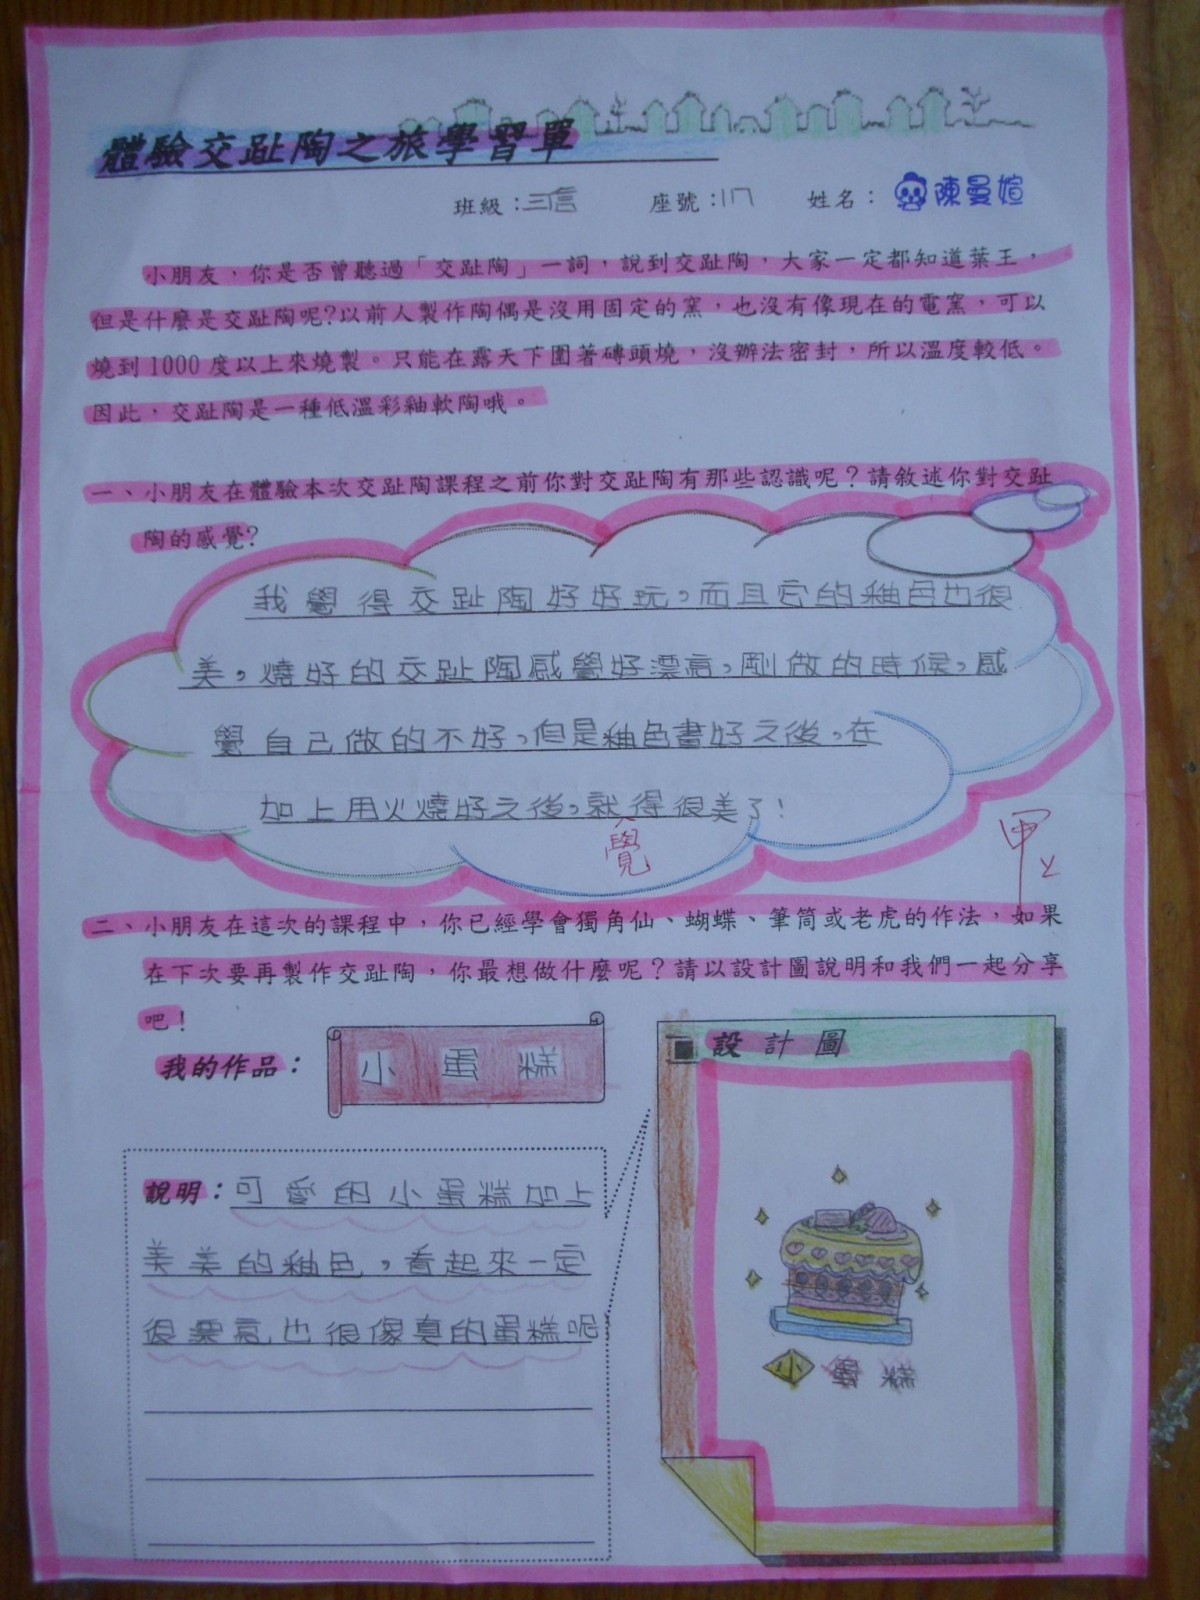 體驗交趾陶之旅學習單
班級：三信 座號：17 姓名：陳曼媗
小朋友，你是否曾聽過「交趾陶」一詞，說到交趾陶，大家一定都知道葉王，
但是什麼是交趾陶呢?以前人製作陶偶是沒用固定的窯，也沒有像現在的電窯，可以
燒到1000度以上來燒製。只能在露天下圍著磚頭燒，沒辦法密封，所以溫度較低。
因此，交趾陶是一種低溫彩釉軟陶哦。
一、小朋友在體驗本次交趾陶課程之前你對交趾陶有那些認識呢？請敘述你對交趾
陶的感覺?
我覺得交趾陶好好玩，而且它的釉色也很
美，燒好的交趾陶感覺好漂亮，剛做的時候，感
覺自己做的不好，但是釉色畫好之後，在
加上用火燒好之後，就得很美了！
覺
甲上
二、小朋友在這次的課程中，你已經學會獨角仙、蝴蝶、筆筒或老虎的作法，如果
在下次要再製作交趾陶，你最想做什麼呢？請以設計圖說明和我們一起分享
吧！
我的作品：小蛋糕
設計圖
說明：可愛的小蛋糕加上
美美的釉色，看起來一定
很漂亮也很像真的蛋糕呢
小蛋糕